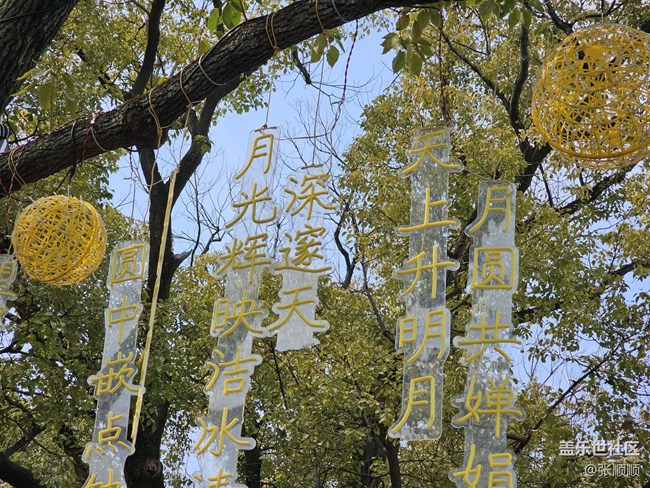 圆中嵌点
月光辉映洁冰
深邃天
天上升明月
月圆共婵娟
盖乐世社区
@张顺顺